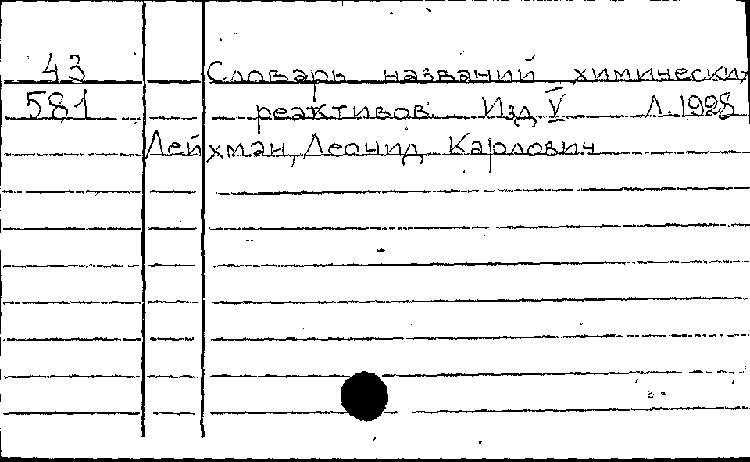 43 Словарь названий химических
581 реактивов. Изд V Л. 1928
Лейхман, Леонид Карлович